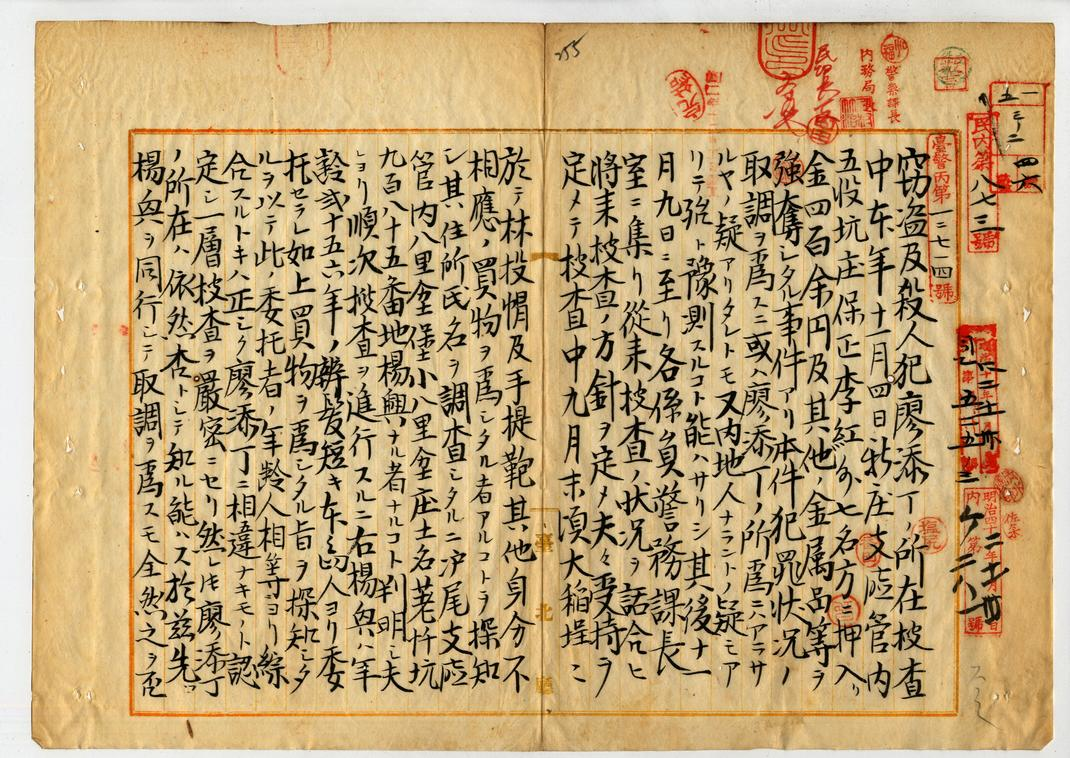 255
民內第八七三號
臺警丙第一二七一四號
警察課長
內務局長
竊盜及殺人犯廖添丁ノ所在搜査
中本年十一月四日新庄支廳管內
五股坑庄保正李紅外七名方ニ押入リ
金四百余円及其他ノ金属品等ヲ
強奪シタル事件アリ本件犯罪狀況ノ
取調ヲ爲スニ或ハ廖添丁ノ所爲ニハアラサ
ルヤノ疑アリタレトモ又内地人ナラントノ疑モア
リテ強ト豫測スルコト能ハサリシ其後十一
月九日ニ至リ各係員警務課長
室ニ集リ從来搜査ノ状況ヲ話合ヒ
將来搜査ノ方針ヲ定メ夫々受持ヲ
定メテ搜査中九月末頃大稻埕ニ
於テ林投帽及手提鞄其他身分不
相應ノ買物ヲ爲シタル者アルコトヲ探知
シ其住所氏名ヲ調査シタルニ沪尾支廳
管内八里坌堡小八里坌庄土名荖阡坑
九百八十五番地楊興ナル者ナルコト判明シ夫
ヨリ順次搜査ヲ進行スルニ右楊興ハ年
齡弐十五六年ノ辮髪短キ本島人ヨリ委
托セラレ如上買物ヲ爲シタル旨ヲ探知シタ
ルヲ以テ此ノ委托者ノ年齡人相等ヨリ綜
合スルトキハ正シク廖添丁ニ相違ナキモノト認
定シ一層搜査ヲ嚴密ニセリ然レトモ廖添丁
ノ所在ハ依然杳トシテ知ル能ハス於茲先ツ
楊興ヲ同行シテ取調ヲ爲スモ全然之ヲ否
臺北廳